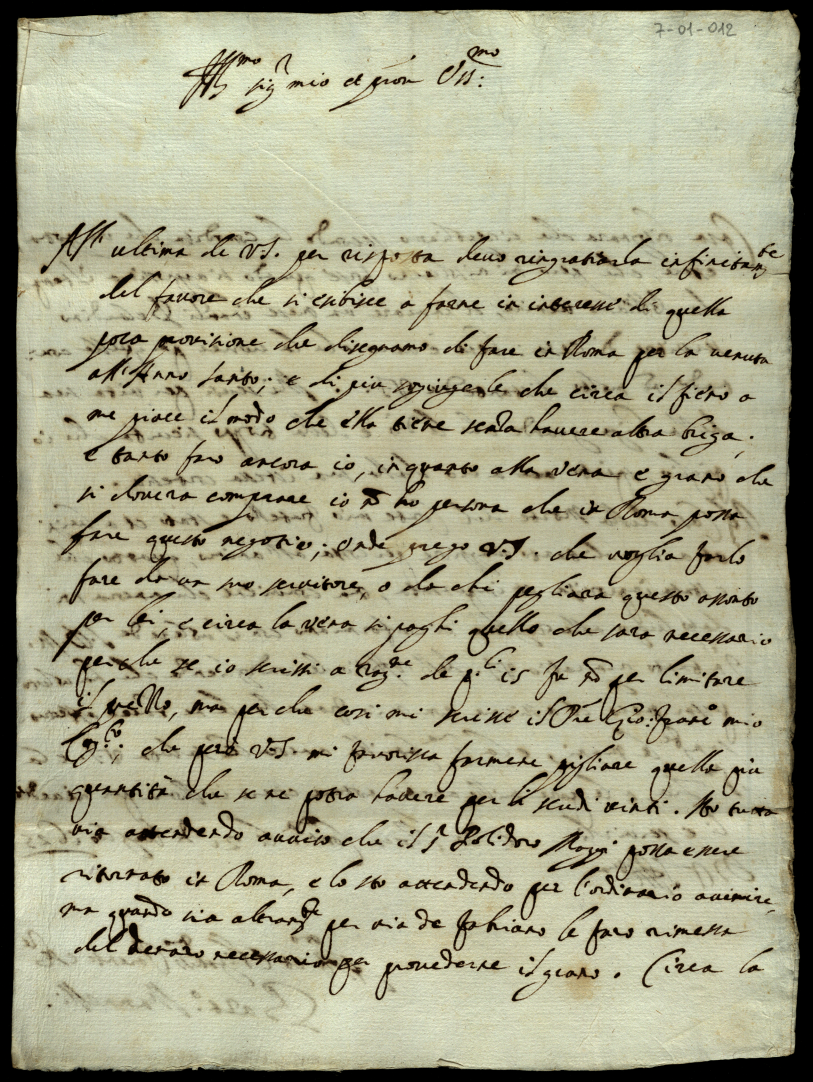 7-01-012
Ill.mo sig.r mio et pron Oss.mo
All' ultima di V.S. per risposta devo ringratiarla infinitam.te
del favore che si esibisce a farne in interesse di quella
poca provisione che disegnamo di fare in Roma per la venuta
all'Anno santo; e di piu sogiungerle che circa il fieno a
me piace il modo che ella tiene senza havere altra briga;
e tanto faro ancora io, in quanto alla vena e grano che
si dovera comprare io nõ ho persona che in Roma possa
fare questo negotio; onde prego V.S. che voglia farlo
fare da un suo servitore, o da chi pegliara questo assonto
per lei, e circa la vena si paghi quello che sara necessario
perche se io scrissi a rag.ne de p.li 15 fu nõ per limitare
il prezzo, ma perche cosi mi scrisse il Prê Gio: Franc.o mio
Cog.to; che però V.S. mi favorissa farmene pigliare quella piu
quantità che se ne potra havere per li scudi vinti. Sto tutta
via attendendo aviso che il S.r Polidoro possa essere
ritornato in Roma, e lo sto attendendo per l'ordinario avenire,
ma quando sia altram.te per via de Fabriano le faro rimessa
del denaro necessario per provederne il grano. Circa la